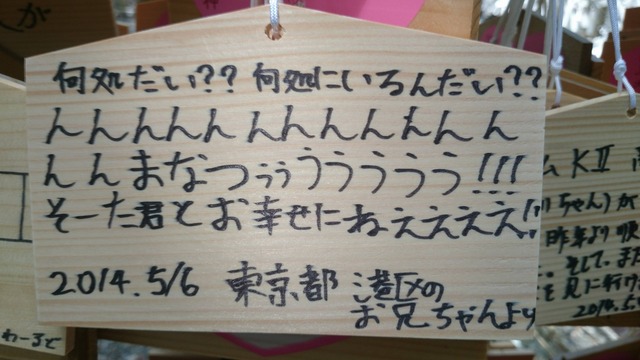 何処だい?? 何処にいるんだい??
んんんんん んんんんんんん
んんまなつぅぅううううう!!!
そーた君とお幸せにねぇええええ!!
2014.5/6 東京都 港区の
お兄ちゃんより
ムKⅡ
ちゃん)が
昨年より
そして、また
を見に行け
2014.5.
わーると
が